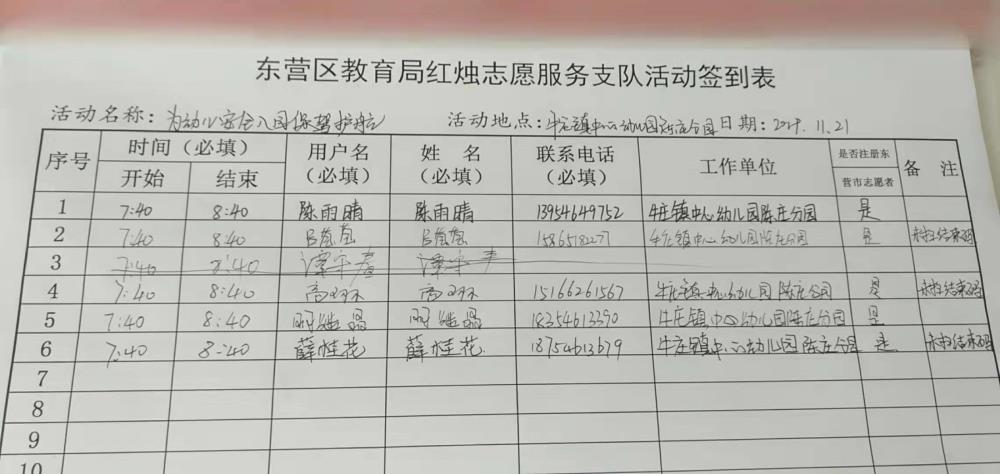 东营区教育局红烛志愿服务支队活动签到表
活动名称：为幼儿安全入园保驾护航 活动地点：牛庄镇中心幼儿园陈庄分园 日期：11.21
序号 时间（必填） 用户名（必填） 姓 名（必填） 联系电话（必填） 工作单位 是否注册东营市志愿者 备 注
开始 结束
1 7:40 8:40 陈雨晴 陈雨晴 13954649752 牛庄镇中心幼儿园陈庄分园 是
2 7:40 8:40 牛庄镇中心幼儿园陈庄分园 是 未扫结束码
3 7:40 8:40
4 7:40 8:40 15166261567 牛庄镇中心幼儿园陈庄分园 是 未扫结束码
5 7:40 8:40 18354613390 牛庄镇中心幼儿园陈庄分园 是
6 7:40 8:40 薛桂花 薛桂花 18754613679 牛庄镇中心幼儿园陈庄分园 是 未扫结束码
7
8
9
10